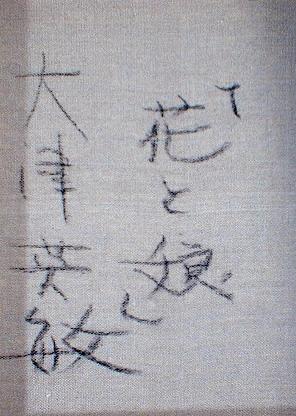 「花と娘」
大津英敏